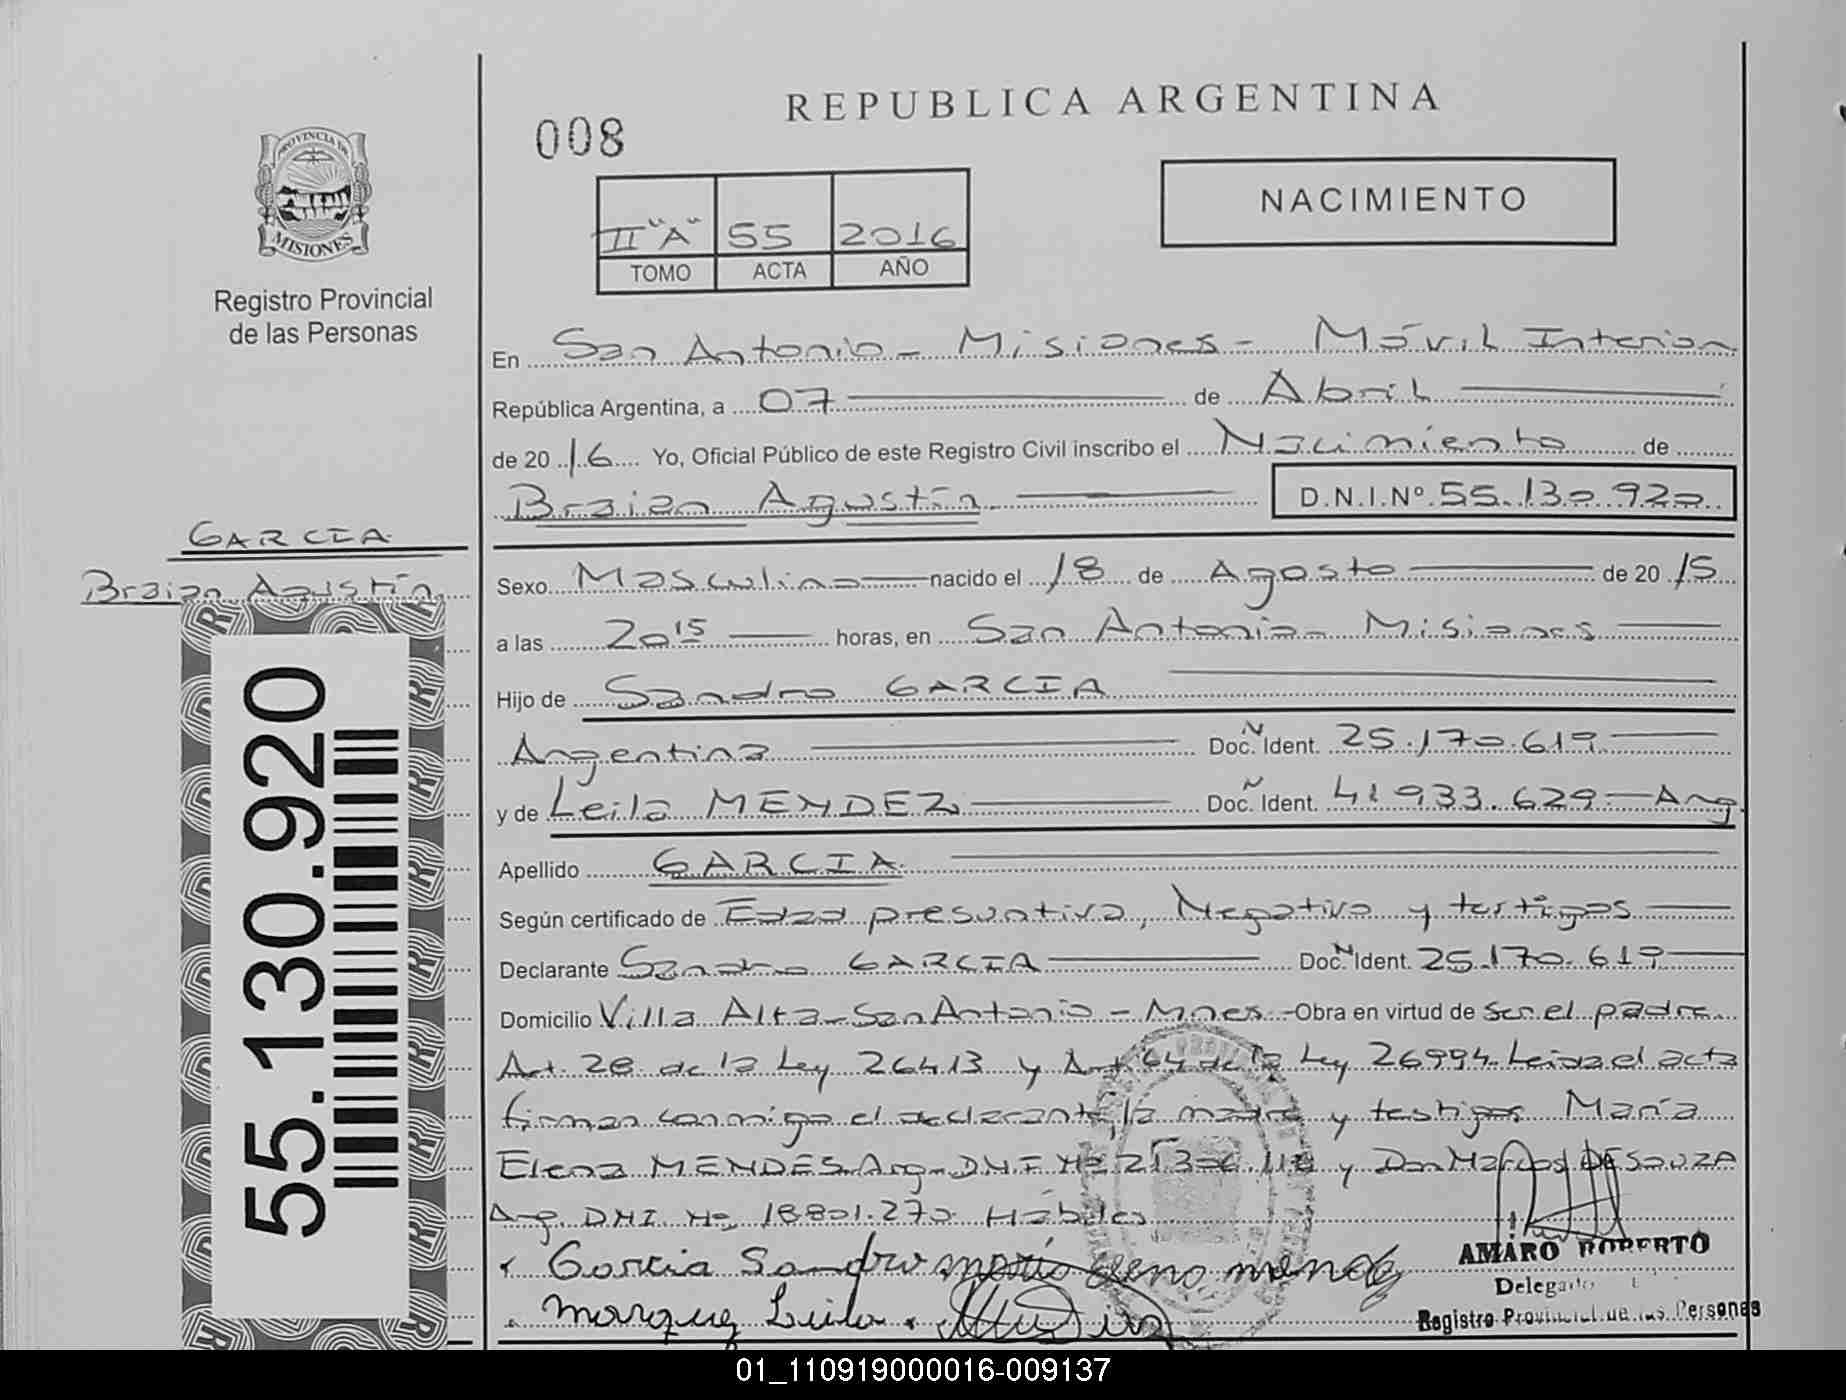 REPUBLICA ARGENTINA
008
NACIMIENTO
II "A" 55 2016
TOMO ACTA AÑO
PROVINCIA DE
MISIONES
Registro Provincial
de las Personas
En San Antonio - Misiones - Móvil Interior
República Argentina, a 07 de Abril
de 20 16 Yo, Oficial Público de este Registro Civil inscribo el Nacimiento de
Braian Agustín D.N.I.Nº 55.130.920
GARCIA
Braian Agustín
Sexo Masculino nacido el 18 de Agosto de 20 15
a las 20 15 horas, en San Antonio - Misiones
Hijo de Sandro GARCIA
Argentina Doc. Ident. 25.170.619
y de Leila MENDEZ Doc. Ident. 41.933.629 - Arg.
Apellido GARCIA
Según certificado de Edad presuntiva, Negativo y testigos
Declarante Sandro GARCIA Doc. Ident. 25.170.619
Domicilio Villa Alta - San Antonio - Mnes. - Obra en virtud de ser el padre
Art. 28 de la Ley 26413 y Art. 64 de la Ley 26994. Leida el acta
firman conmigo el declarante, la madre y testigos María
Elena MENDES Arg. DNI Nº y Don Marcos DE SOUZA
Arg. DNI. Nº 18801.270 Hábiles
Garcia Sandro maria eleno mendez
AMARO ROBERTO
Delegado
Registro Provincial de las Personas
55.130.920
01_110919000016-009137